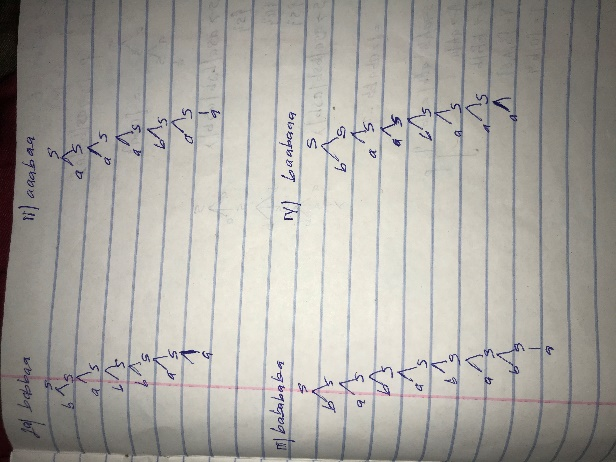 1a) babbaa
S
b S
a S
b S
b S
a S
a
ii) aaabaa
S
a S
a S
a S
b S
a S
a
iii) babababa
S
b S
a S
b S
a S
b S
a S
b S
a
iv) baabaaa
S
b S
a S
a S
b S
a S
a S
a